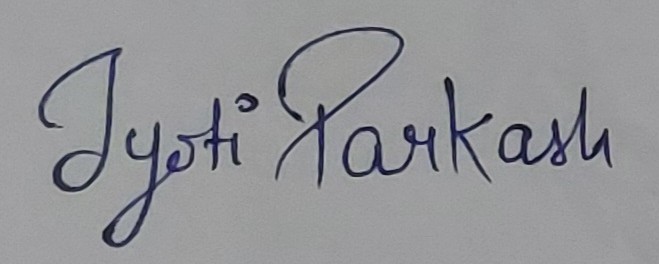 Jyoti Parkash